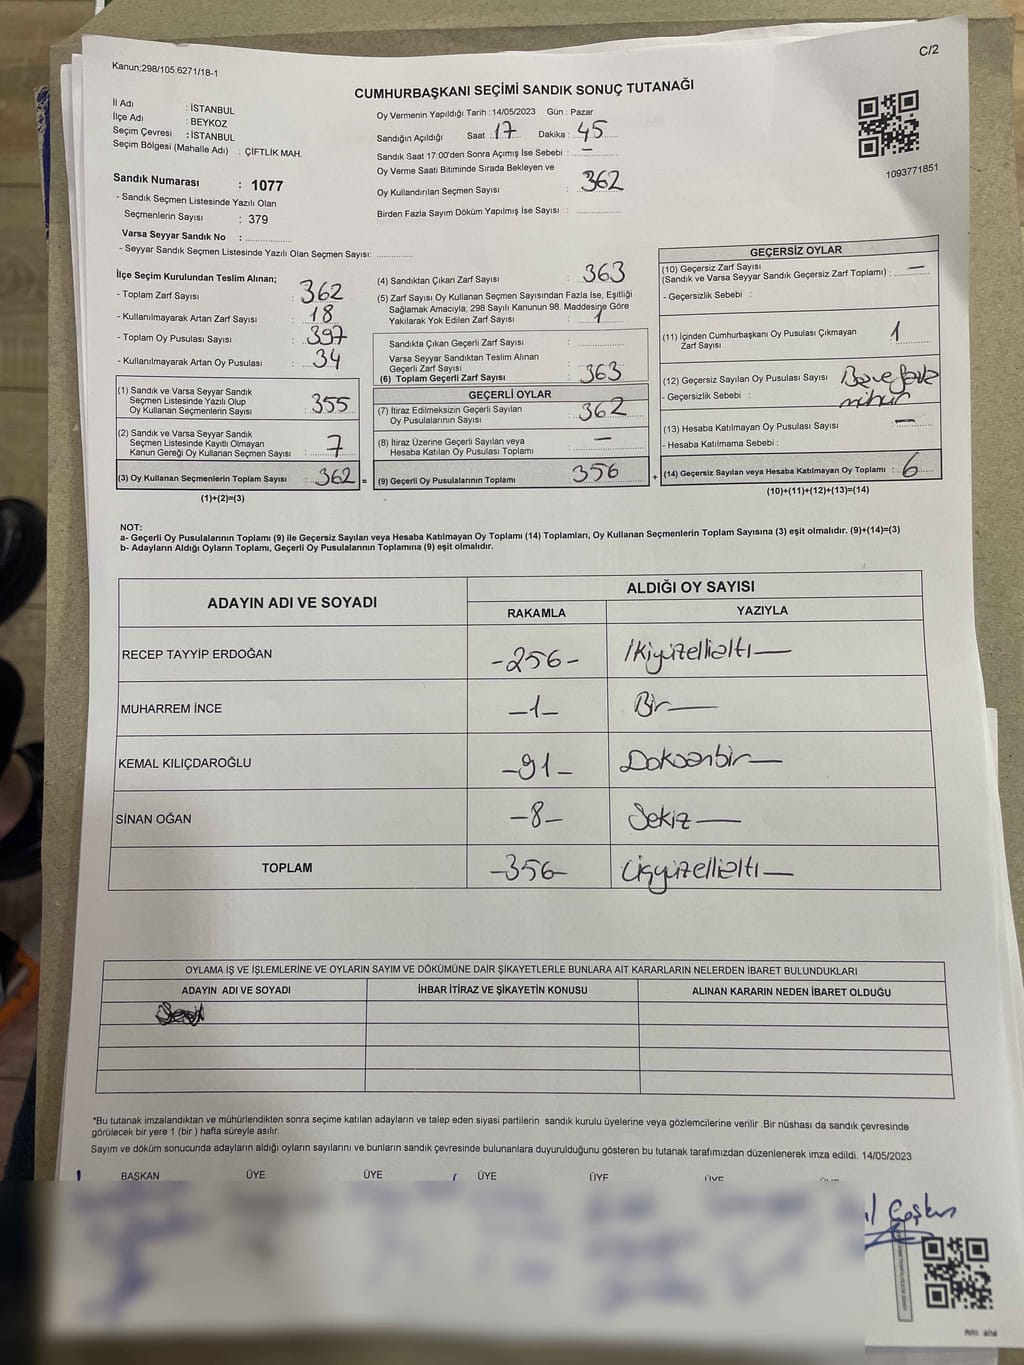 C/2
Kanun;298/105,6271/18-1
CUMHURBAŞKANI SEÇİMİ SANDIK SONUÇ TUTANAĞI
İl Adı : İSTANBUL
İlçe Adı : BEYKOZ
Seçim Çevresi : İSTANBUL
Seçim Bölgesi (Mahalle Adı) : ÇİFTLİK MAH.
Sandık Numarası : 1077
- Sandık Seçmen Listesinde Yazılı Olan
Seçmenlerin Sayısı : 379
Varsa Seyyar Sandık No :
- Seyyar Sandık Seçmen Listesinde Yazılı Olan Seçmen Sayısı:
Oy Vermenin Yapıldığı Tarih : 14/05/2023 Gün : Pazar
Sandığın Açıldığı Saat : 17 Dakika : 45
Sandık Saat 17:00'den Sonra Açımış İse Sebebi : -
Oy Verme Saati Bitiminde Sırada Bekleyen ve
Oy Kullandırılan Seçmen Sayısı : 362
Birden Fazla Sayım Döküm Yapılmış İse Sayısı :
1093771851
İlçe Seçim Kurulundan Teslim Alınan;
- Toplam Zarf Sayısı : 362
- Kullanılmayarak Artan Zarf Sayısı : 18
- Toplam Oy Pusulası Sayısı : 397
- Kullanılmayarak Artan Oy Pusulası : 34
(1) Sandık ve Varsa Seyyar Sandık
Seçmen Listesinde Yazılı Olup
Oy Kullanan Seçmenlerin Sayısı : 355
(2) Sandık ve Varsa Seyyar Sandık
Seçmen Listesinde Kayıtlı Olmayan
Kanun Gereği Oy Kullanan Seçmen Sayısı : 7
(3) Oy Kullanan Seçmenlerin Toplam Sayısı : 362 =
(1)+(2)=(3)
(4) Sandıktan Çıkan Zarf Sayısı : 363
(5) Zarf Sayısı Oy Kullanan Seçmen Sayısından Fazla İse, Eşitliği
Sağlamak Amacıyla; 298 Sayılı Kanunun 98. Maddesine Göre
Yakılarak Yok Edilen Zarf Sayısı : 1
Sandıkta Çıkan Geçerli Zarf Sayısı :
Varsa Seyyar Sandıktan Teslim Alınan
Geçerli Zarf Sayısı :
(6) Toplam Geçerli Zarf Sayısı : 363
GEÇERLİ OYLAR
(7) İtiraz Edilmeksizin Geçerli Sayılan
Oy Pusulalarının Sayısı : 362
(8) İtiraz Üzerine Geçerli Sayılan veya
Hesaba Katılan Oy Pusulası Toplamı : -
(9) Geçerli Oy Pusulalarının Toplamı 356 +
GEÇERSİZ OYLAR
(10) Geçersiz Zarf Sayısı
(Sandık ve Varsa Seyyar Sandık Geçersiz Zarf Toplamı) : -
- Geçersizlik Sebebi :
(11) İçinden Cumhurbaşkanı Oy Pusulası Çıkmayan
Zarf Sayısı : 1
(12) Geçersiz Sayılan Oy Pusulası Sayısı
- Geçersizlik Sebebi : mühür
(13) Hesaba Katılmayan Oy Pusulası Sayısı : -
- Hesaba Katılmama Sebebi :
(14) Geçersiz Sayılan veya Hesaba Katılmayan Oy Toplamı : 6
(10)+(11)+(12)+(13)=(14)
NOT:
a- Geçerli Oy Pusulalarının Toplamı (9) ile Geçersiz Sayılan veya Hesaba Katılmayan Oy Toplamı (14) Toplamları, Oy Kullanan Seçmenlerin Toplam Sayısına (3) eşit olmalıdır. (9)+(14)=(3)
b- Adayların Aldığı Oyların Toplamı, Geçerli Oy Pusulalarının Toplamına (9) eşit olmalıdır.
ADAYIN ADI VE SOYADI
ALDIĞI OY SAYISI
RAKAMLA YAZIYLA
RECEP TAYYİP ERDOĞAN -256- İkiyüzellialtı—
MUHARREM İNCE -1- Bir—
KEMAL KILIÇDAROĞLU -91- Doksanbir—
SİNAN OĞAN -8- Sekiz—
TOPLAM -356- Üçyüzellialtı—
OYLAMA İŞ VE İŞLEMLERİNE VE OYLARIN SAYIM VE DÖKÜMÜNE DAİR ŞİKAYETLERLE BUNLARA AİT KARARLARIN NELERDEN İBARET BULUNDUKLARI
ADAYIN ADI VE SOYADI İHBAR İTİRAZ VE ŞİKAYETİN KONUSU ALINAN KARARIN NEDEN İBARET OLDUĞU
*Bu tutanak imzalandıktan ve mühürlendikten sonra seçime katılan adayların ve talep eden siyasi partilerin sandık kurulu üyelerine veya gözlemcilerine verilir .Bir nüshası da sandık çevresinde
görülecek bir yere 1 (bir ) hafta süreyle asılır.
Sayım ve döküm sonucunda adayların aldığı oyların sayılarını ve bunların sandık çevresinde bulunanlara duyurulduğunu gösteren bu tutanak tarafımızdan düzenlenerek imza edildi. 14/05/2023
BAŞKAN ÜYE ÜYE ÜYE ÜYE ÜYE
Coşkun